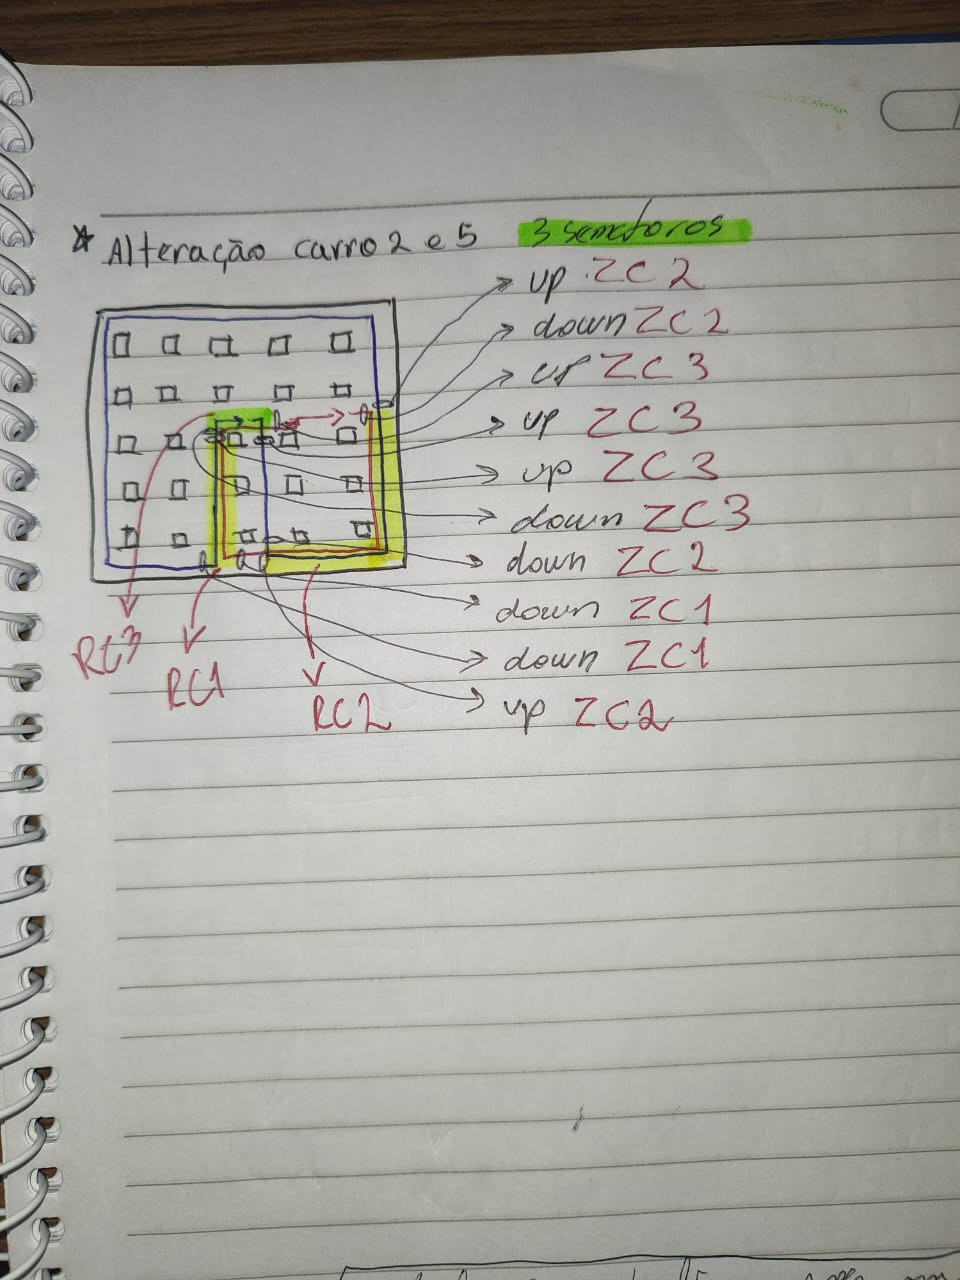 * Alteração carro 2 e 5 3 semaforos
up ZC2
down ZC2
up ZC3
up ZC3
up ZC3
down ZC3
down ZC2
down ZC1
down ZC1
up ZC2
RC3
RC1
RC2